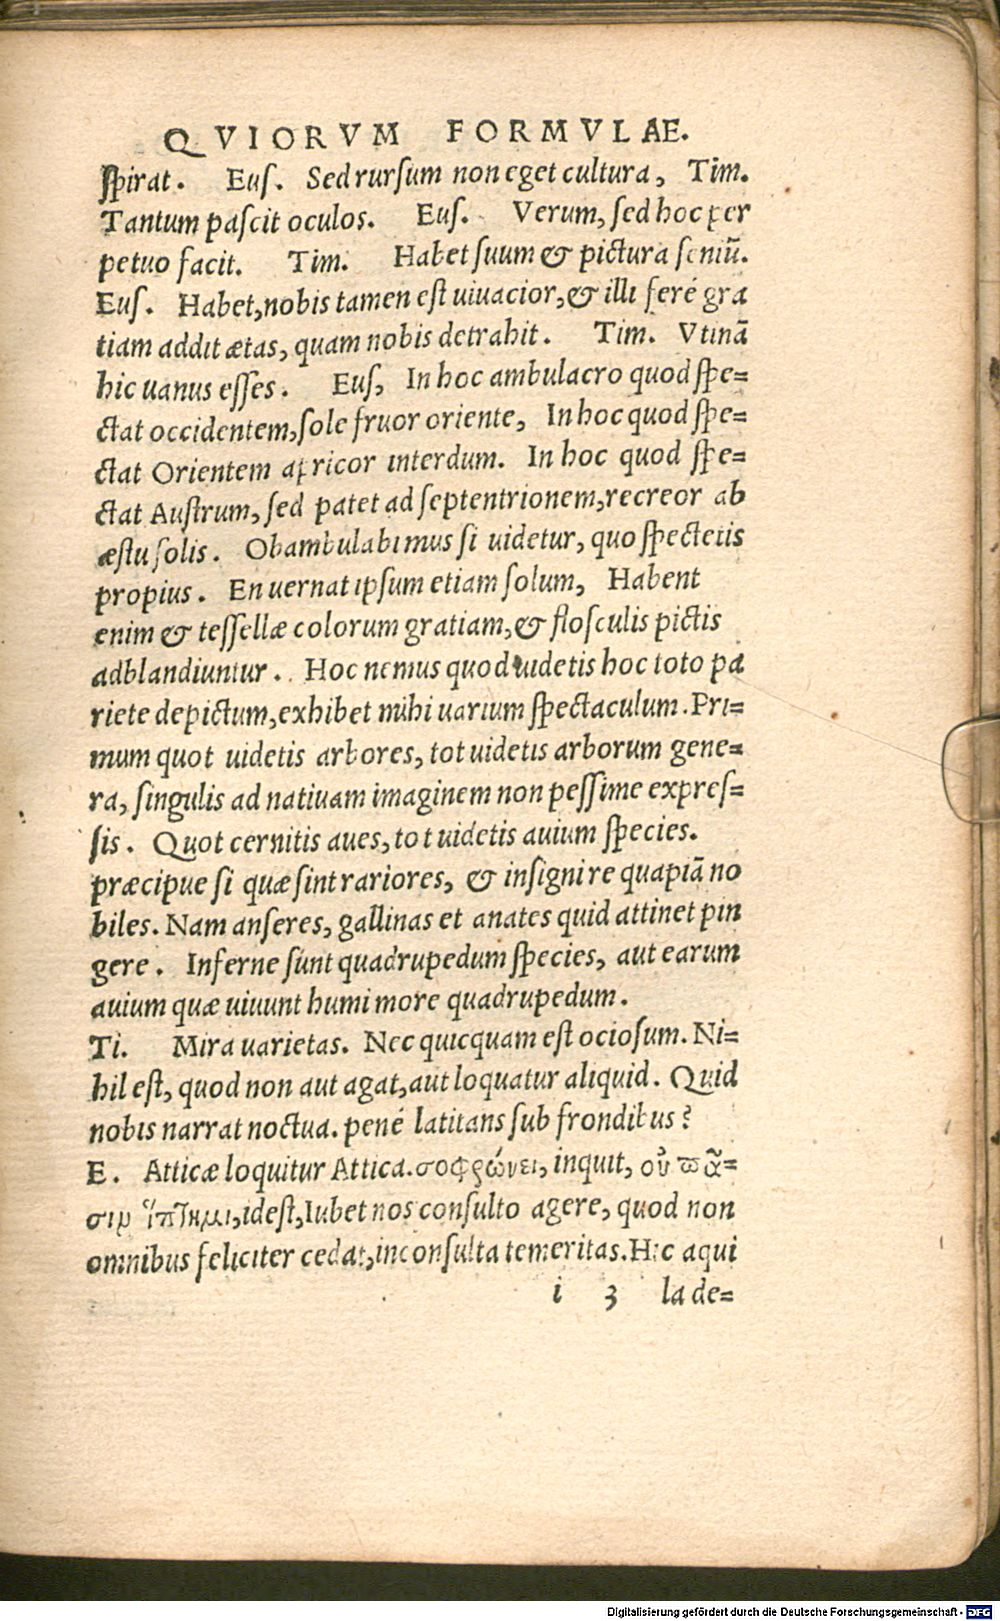 QVIORVM FORMVLAE.
spirat. Eus. Sed rursum non eget cultura, Tim.
Tantum pascit oculos. Eus. Verum, sed hoc per
petuo facit. Tim. Habet suum & pictura seniũ.
Eus. Habet, nobis tamen est uiuacior, & illi feré gra
tiam addit ætas, quam nobis detrahit. Tim. Vtinã
hic uanus esses. Eus, In hoc ambulacro quod spe=
ctat occidentem, sole fruor oriente, In hoc quod spe=
ctat Orientem apricor interdum. In hoc quod spe=
ctat Austrum, sed patet ad septentrionem, recreor ab
æstu solis. Obambulabimus si uidetur, quo spectetis
propius. En uernat ipsum etiam solum, Habent
enim & tessellæ colorum gratiam, & flosculis pictis
adblandiuntur. Hoc nemus quod uidetis hoc toto pa
riete depictum, exhibet mihi uarium spectaculum. Pri=
mum quot uidetis arbores, tot uidetis arborum gene=
ra, singulis ad natiuam imaginem non pessime expres=
sis. Quot cernitis aues, tot uidetis auium species.
præcipue si quæ sint rariores, & insigni re quapiã no
biles. Nam anseres, gallinas et anates quid attinet pin
gere. Inferne sunt quadrupedum species, aut earum
auium quæ uiuunt humi more quadrupedum.
Ti. Mira uarietas. Nec quicquam est ociosum. Ni=
hil est, quod non aut agat, aut loquatur aliquid. Quid
nobis narrat noctua. pené latitans sub frondibus?
E. Atticæ loquitur Attica. σοφρώνει, inquit, οὐ πᾶ=
σιν ἵπτημι, idest, Iubet nos consulto agere, quod non
omnibus feliciter cedat, inconsulta temeritas. Hic aqui
i 3 la de=
Digitalisierung gefördert durch die Deutsche Forschungsgemeinschaft - DFG